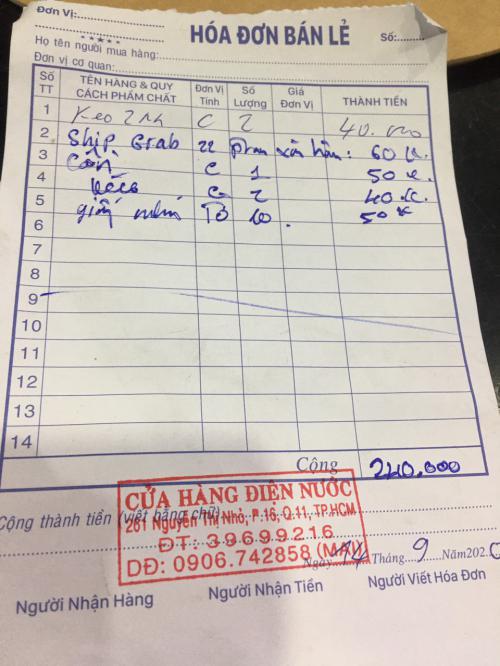 Đơn Vị:
HÓA ĐƠN BÁN LẺ
Số:
Họ tên người mua hàng:
Đơn vị cơ quan:
Số TT TÊN HÀNG & QUY CÁCH PHẨM CHẤT Đơn Vị Tính Số Lượng Giá Đơn Vị THÀNH TIỀN
1 Keo C 2 40.000
2 Ship Grab 22 Phan xích hàn: 60K.
3 C 1 50K.
4 C 2 40K.
5 giấy nhám Tờ 10. 50K
6
7
8
9
10
11
12
13
14
Cộng 240.000
CỬA HÀNG ĐIỆN NƯỚC
Cộng thành tiền (viết bằng chữ)
261 Nguyễn Thị Nhỏ, P.16, Q.11, TP.HCM
ĐT: 39699216
DĐ: 0906.742858 (MAI)
Ngày 14 Tháng 9 Năm 2020
Người Nhận Hàng Người Nhận Tiền Người Viết Hóa Đơn